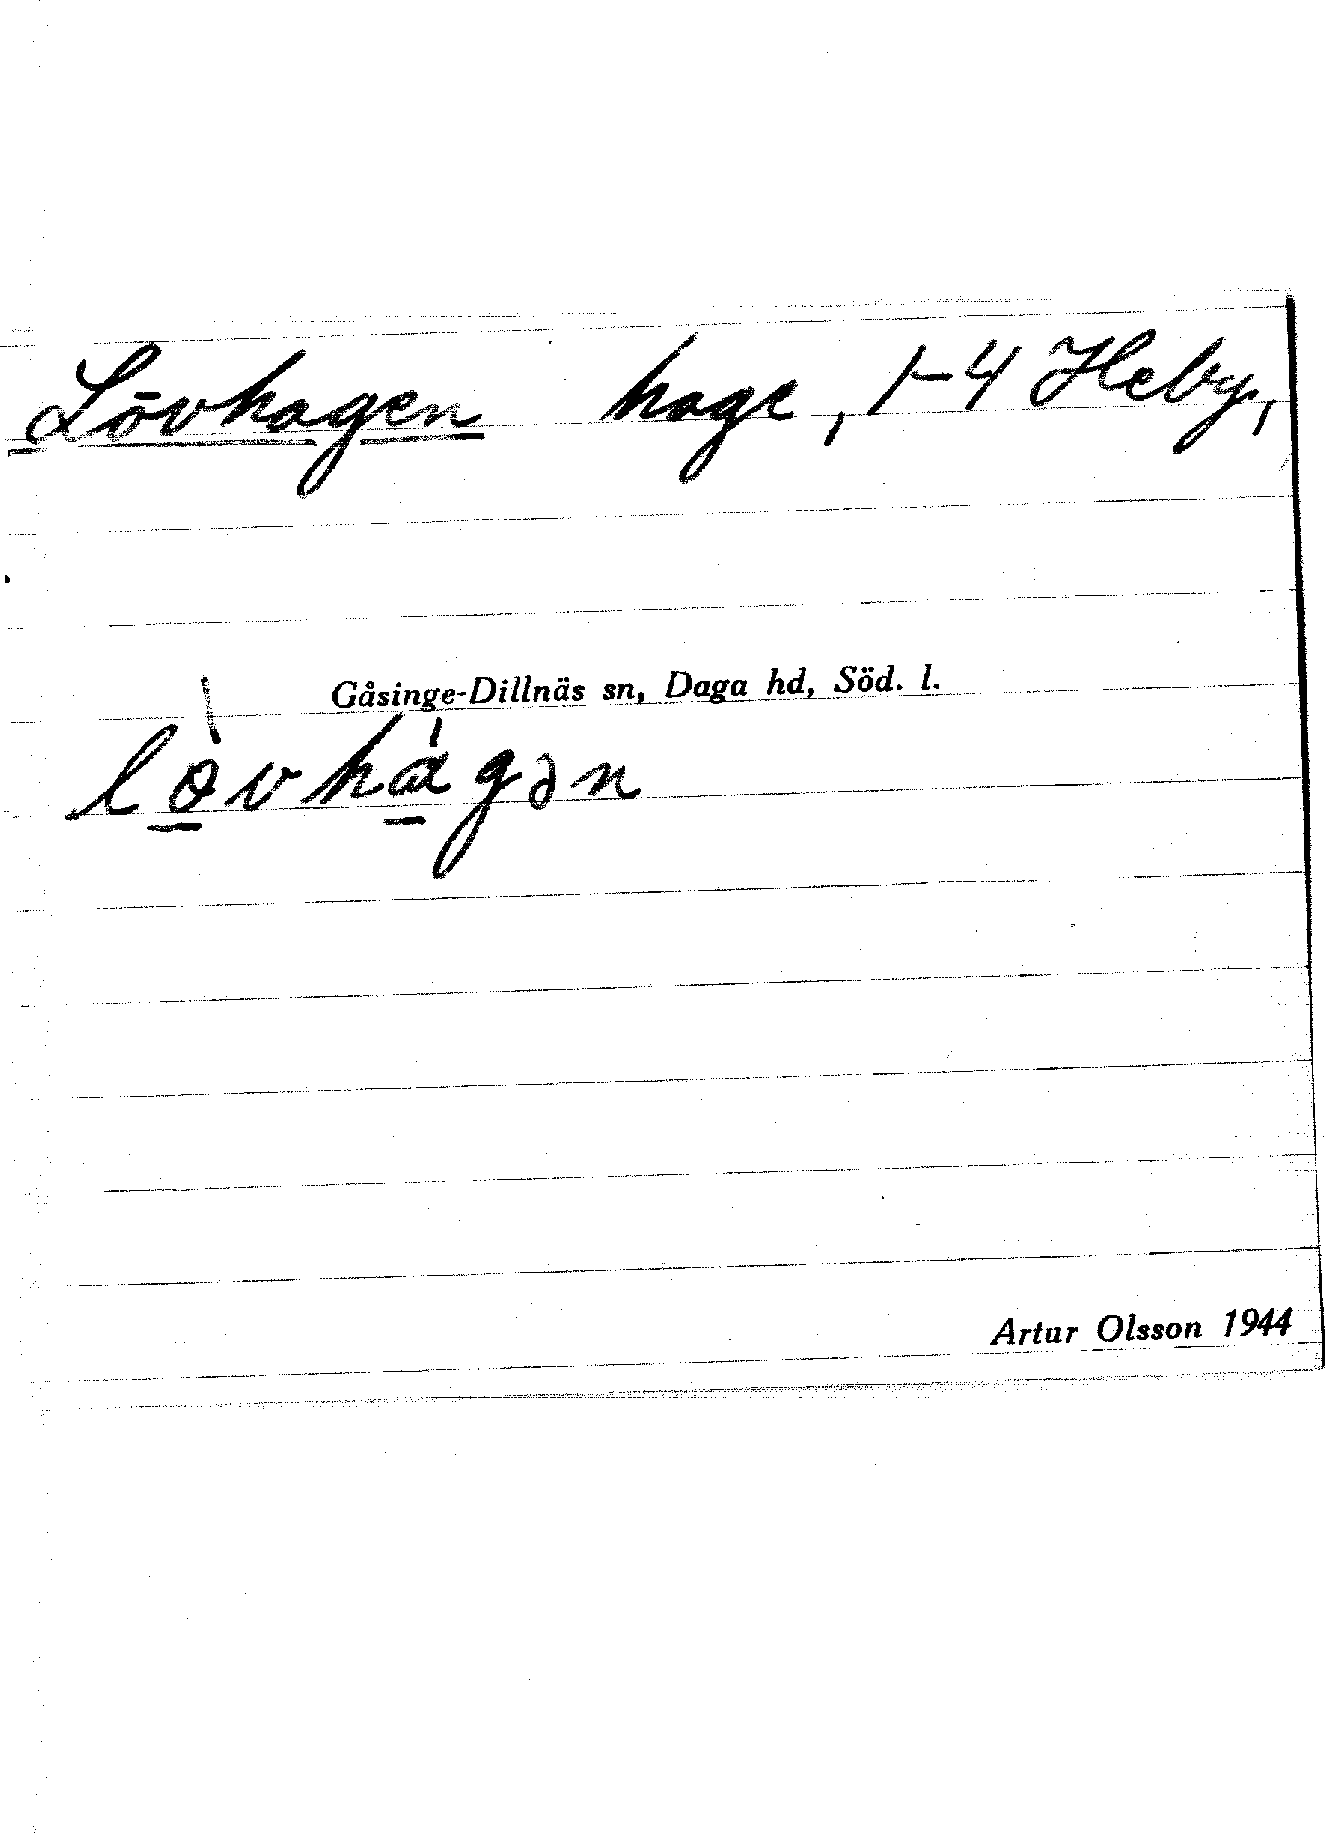 Lövhagen hage, 1-4 Heby,
Gåsinge-Dillnäs sn, Daga hd, Söd. l.
lø̠̀vhɑ̠́gən
Artur Olsson 1944